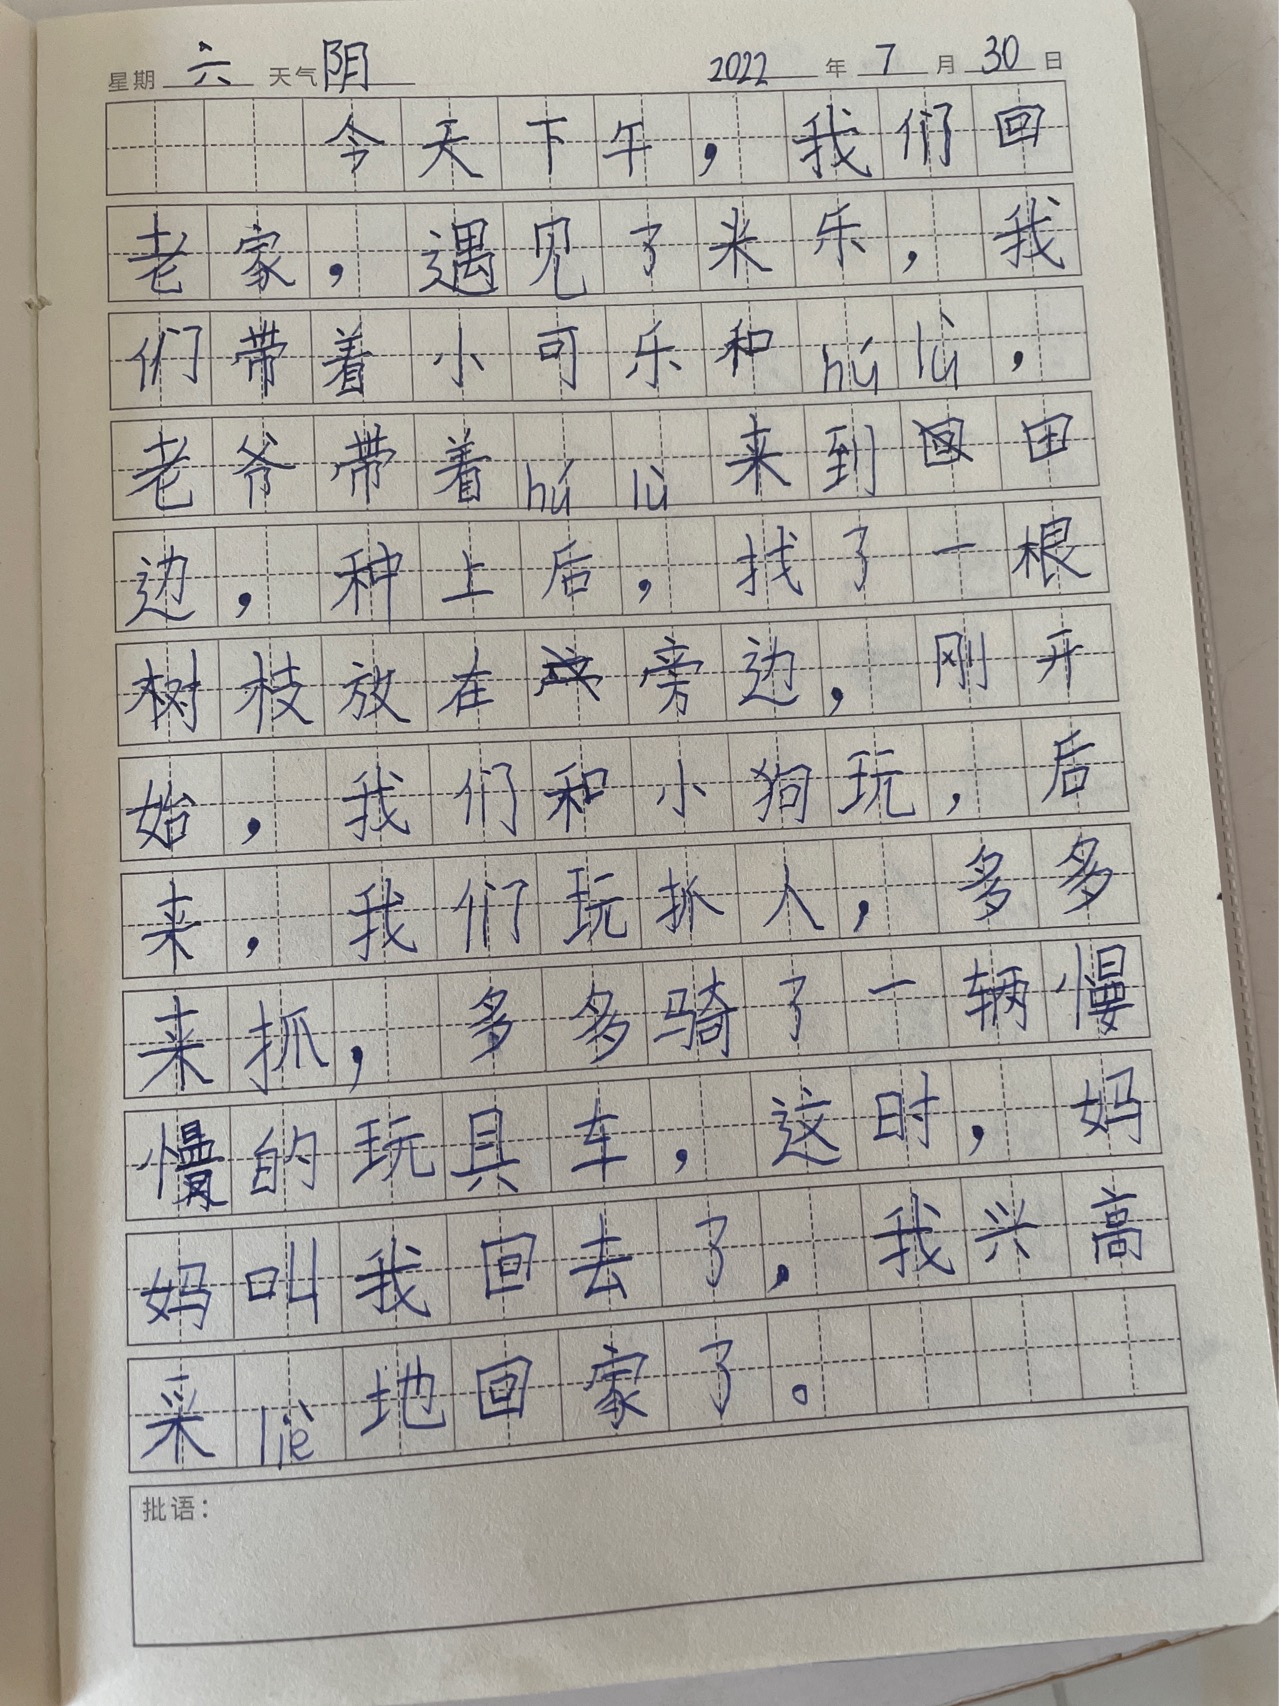 星期 六 天气 阴 2022 年 7 月 30 日
今天下午，我们回
老家，遇见了米乐，我
们带着小可乐和hú lù，
老爷带着hú lù来到田
边，种上后，找了一根
树枝放在旁边，刚开
始，我们和小狗玩，后
来，我们玩抓人，多多
来抓，多多骑了一辆慢
慢的玩具车，这时，妈
妈叫我回去了，我兴高
采liè地回家了。
批语：